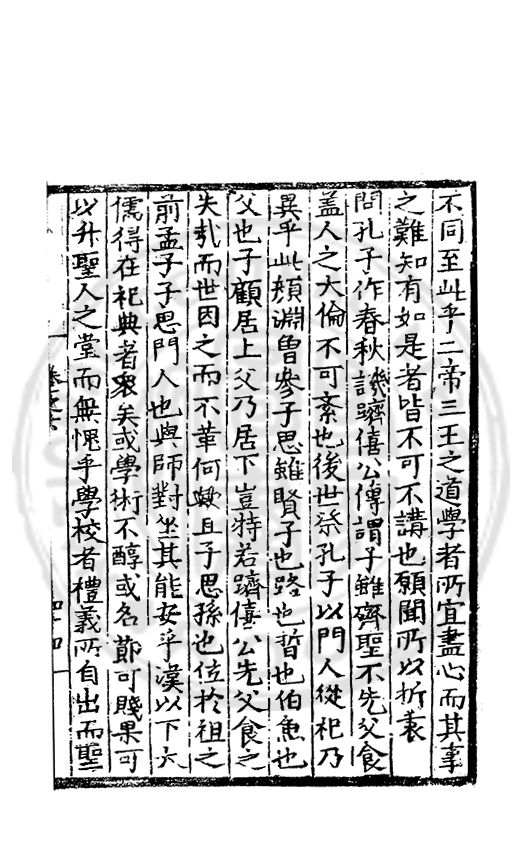 不同至此乎二帝三王之道學者所宜盡心而其事
之難知有如是者皆不可不講也願聞所以折衷
問孔子作春秋譏躋僖公傳謂子雖齊聖不先父食
盖人之大倫不可紊也後世祭孔子以門人從祀乃
異乎此顏淵曾參子思雖賢子也路也晳也伯魚也
父也子顧居上父乃居下豈特若躋僖公先父食之
失哉而世因之而不革何歟且子思孫也位於祖之
前孟子子思門人也與師對坐其能安乎漢以下大
儒得在祀典者衆矣或學術不醇或名節可賤果可
以升聖人之堂而無愧乎學校者禮義所自出而聖